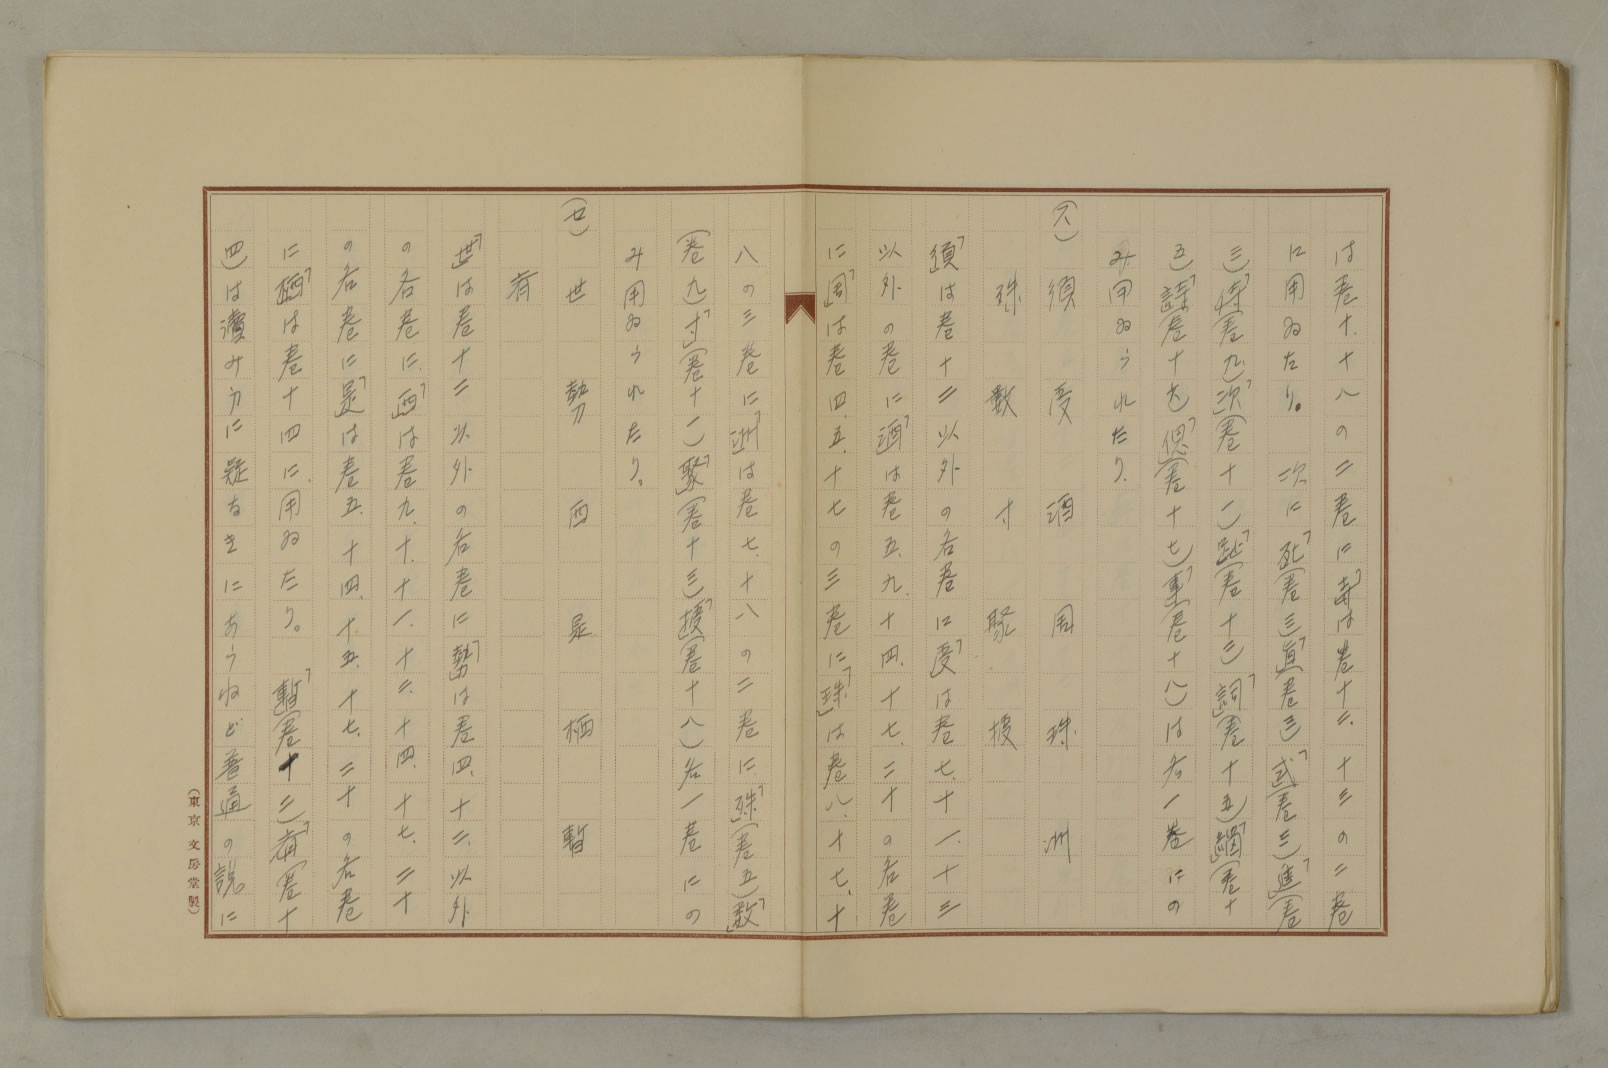 は巻十、十八の二巻に「寺」は巻十二、十三の二巻
に用ゐたり。 次に「死」(巻三)「眞」(巻三)「式」(巻三)「進」(巻
三)「偖」(巻九)「次」(巻十一)「趾」(巻十三)「詞」(巻十五)「緇」(巻十
五)「諜」(巻十七)「偲」(巻十七)「重」(巻十八)は各一巻にの
み用ゐられたり、
(ス) 須 受 酒 周 珠 洲
殊 數 寸 聚 授
「須」は巻十二以外の各巻に「受」は巻七、十一、十三
以外の巻に「酒」は巻五、九、十四、十七、二十の各巻
に「周」は巻四、五、十七の三巻に「珠」は巻八、十七、十
八の三巻に「洲」は巻七、十八の二巻に、「殊」(巻五)「数」
(巻九)「寸」(巻十一)「聚」(巻十三)「授」(巻十八)各一巻にの
み用ゐられたり。
(セ) 世 勢 西 是 栖 暫
齊
「世」は巻十二以外の各巻に「勢」は巻四、十二、以外
の各巻に、「西」は巻九、十、十一、十二、十四、十七、二十
の各巻に「是」は巻五、十四、十五、十七、二十の各巻
に「栖」は巻十四に、用ゐたり。 「暫」(巻十二)「齊」(巻十
四)は讀み方に疑なきにあらねど普通の説に
(東京文房堂製)